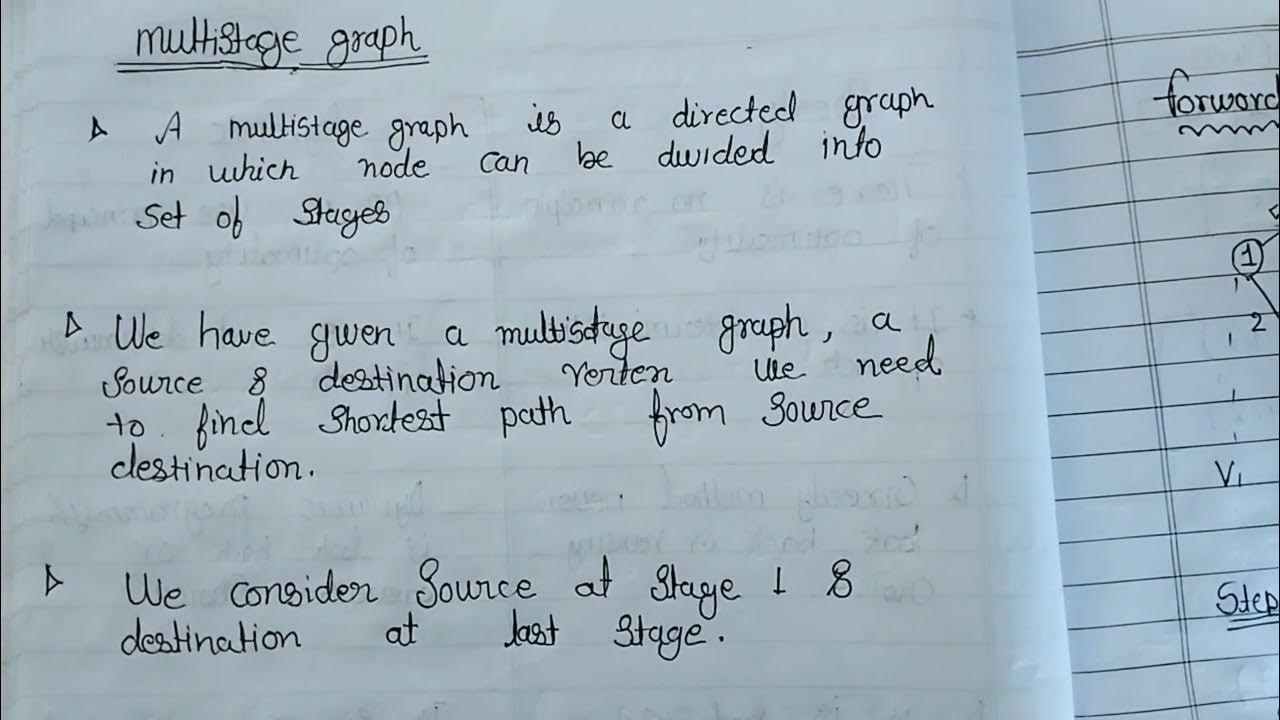 multistage graph
A multistage graph is a directed graph
in which node can be divided into
Set of Stages
We have given a multisdage graph, a
Source & destination verten we need
to find Shortest path from Source
destination.
We consider Source at Stage 1 &
destination at last Stage.
forward
1
2
V1
Step